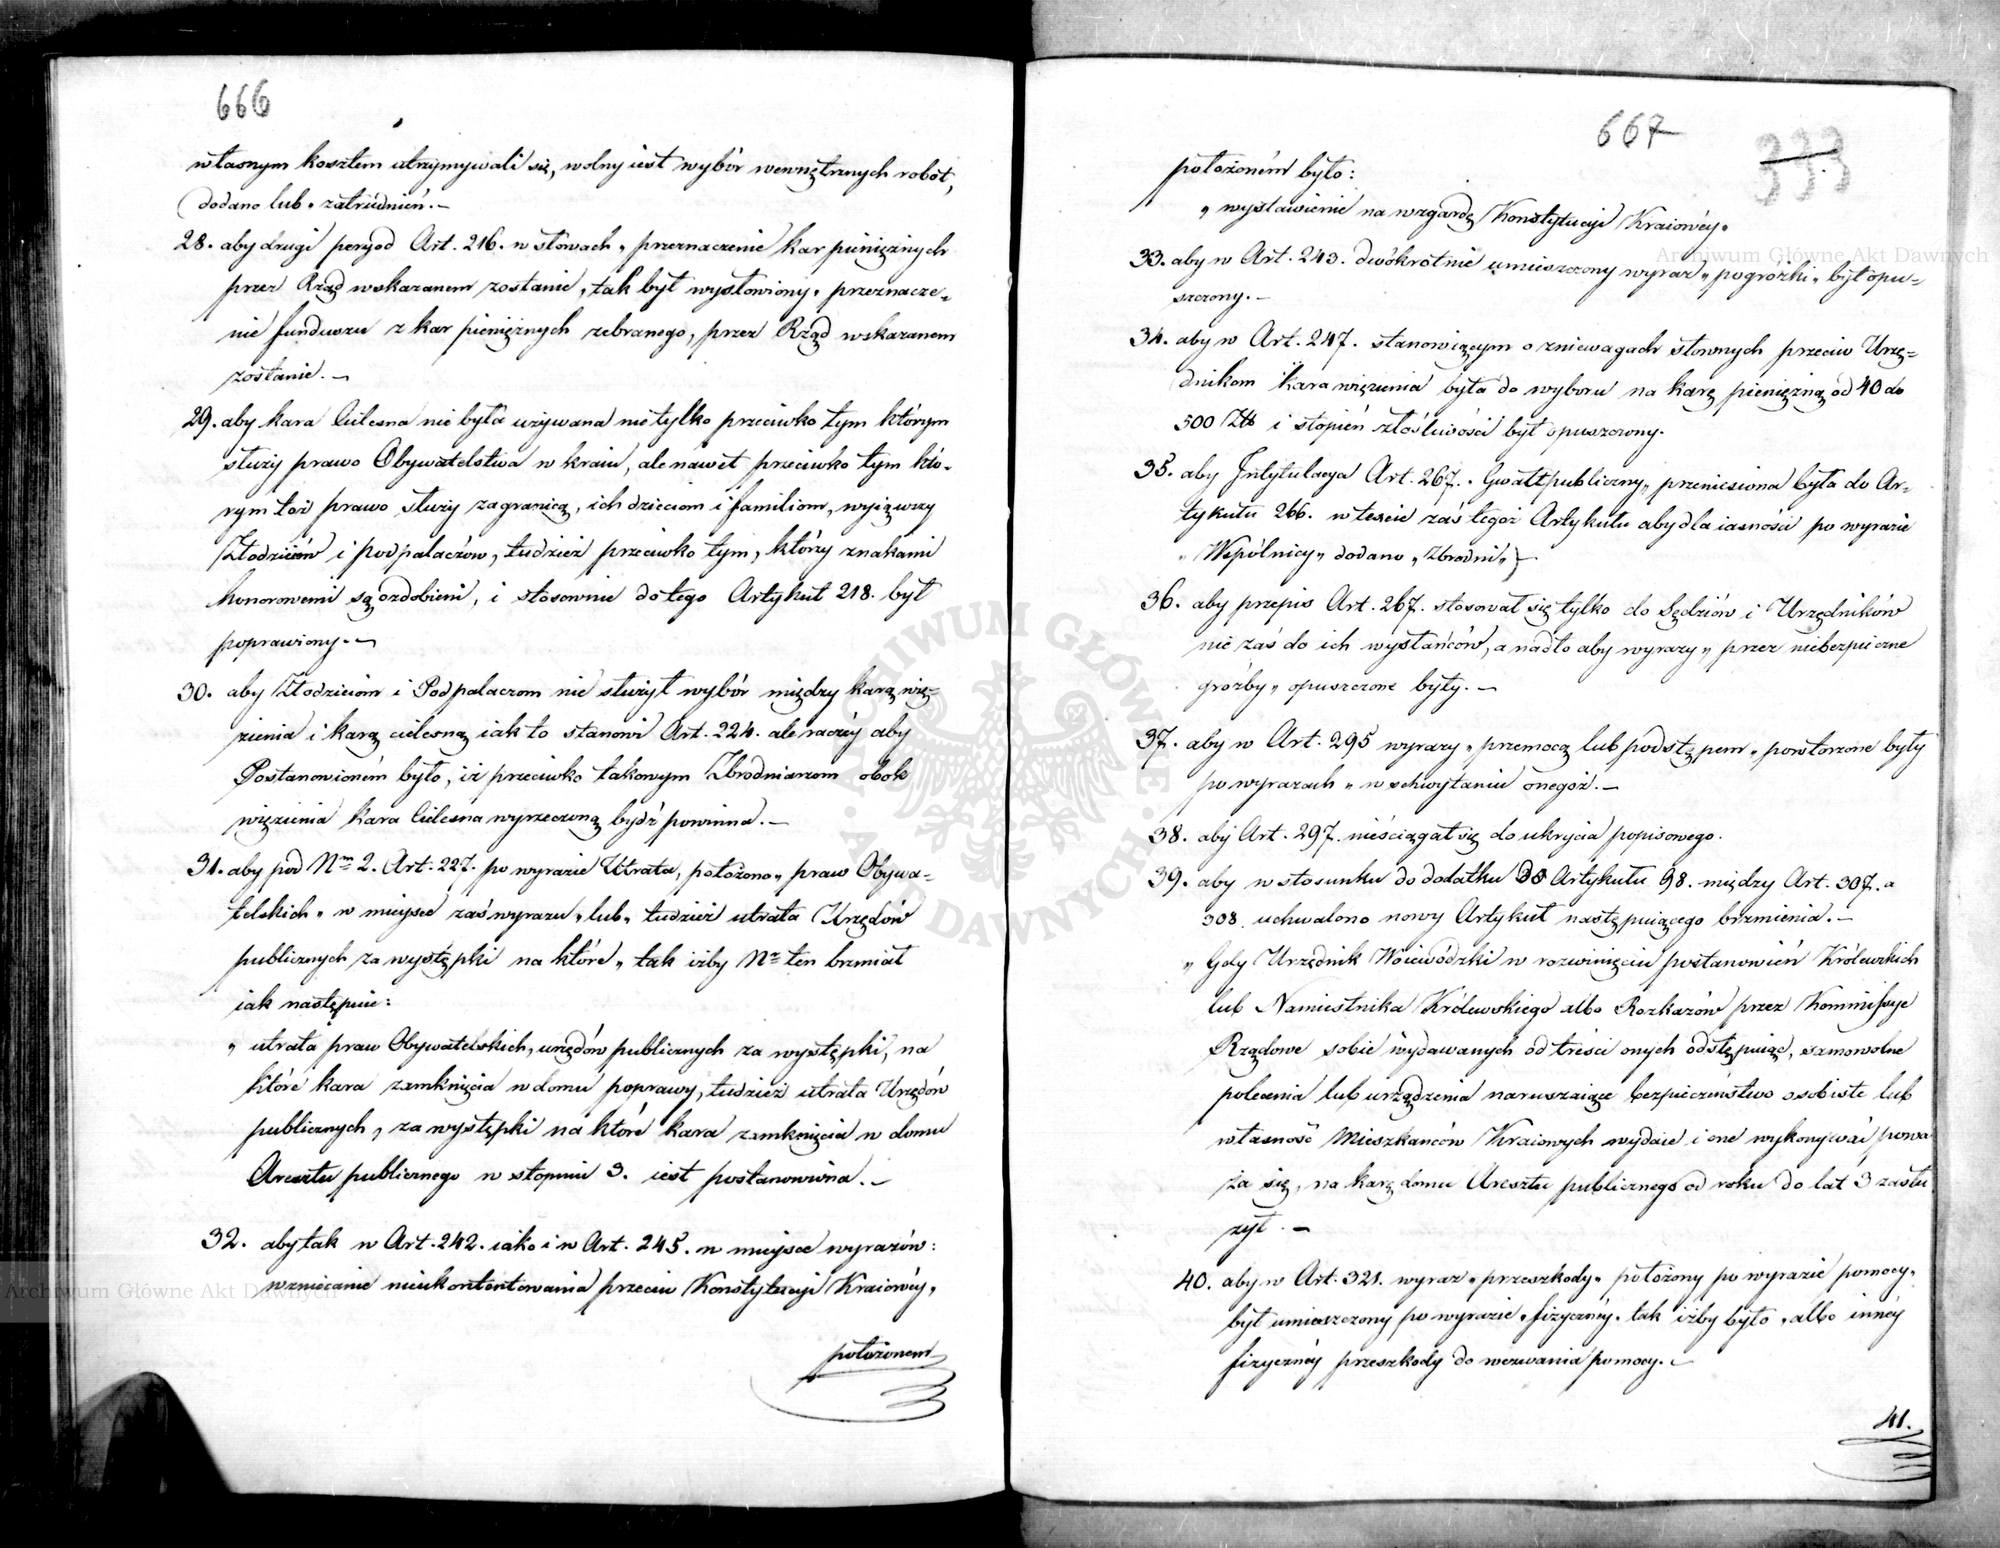 666
własnym kosztem utrzymywali się, wolny iest wybór wewnętrznych robót,
dodano lub „ zatrudnień. —
28. aby drugi peryod Art. 216. w słowach „ przeznaczenie kar pieniężnych
przez Rząd wskazanem zostanie, tak był wysłowiony „ przeznacze=
nie funduszu z kar pieniężnych zebranego, przez Rząd wskazanem
zostanie. —
29. aby kara Cielesna nie była używana nie tylko przeciwko tym którym
służy prawo Obywatelstwa w kraiu, ale nawet przeciwko tym któ-
rym toż prawo służy zagranicą, ich dzieciom i familiom, wyiąwszy
Złodzieiów i podpalaczów, tudzież przeciwko tym, którzy znakami
honorowemi są ozdobieni, i stosownie do tego Artykuł 218. był
poprawiony. —
30. aby Złodzieiom i Podpalaczom nie służył wybór między karą wię=
zienia i karą cielesną iak to stanowi Art. 224. ale raczéy aby
Postanowioném było, iż przeciwko takowym Zbrodniarzom obok
więzienia kara Cielesna wyrzeczoną bydź powinna. —
31. aby pod Nrm 2. Art. 227. po wyrazie Utrata, położono „ praw Obywa=
telskich „ w mieysce zaś wyrazu „ lub „ tudzież utrata Urzędów
publicznych za występki na które „ tak iżby Nr ten brzmiał
iak następuie:
„ utrata praw Obywatelskich, urzędów publicznych za występki, na
które kara zamknięcia w domu poprawy, tudzież utrata Urzędów
publicznych, za występki na które kara zamknięcia w domu
Aresztu publicznego w stopniu 3. iest postanowiona. —
32. aby tak w Art. 242. iako i w Art. 245. w mieysce wyrazów:
wzniecanie nieukontentowania przeciw Konstytucyi Kraiowéy,
położonem
667
333
położoném było:
„ wystawienie na wzgardę Konstytucyi Kraiowéy„
33. aby w Art. 243. dwókrotnie umieszczony wyraz „ pogróżki „ był opu=
szczony. —
34. aby w Art. 247. stanowiącym o zniewagach słownych przeciw Urzę=
dnikom kara więzienia była do wyboru na karę pieniężną od 40 do
500 Złł i stopień złośliwości był opuszczony.
35. aby Intytulacya Art. 267. „ Gwałt publiczny „ przeniesiona była do Ar-
tykułu 266. w texcie zaś tegoż Artykułu aby dla iasności po wyrazie
„ Wspólnicy „ dodano „ Zbrodni „ —
36. aby przepis Art. 267. stosował się tylko do Sędziów i Urzędników
nie zaś do ich wysłańców, a nadto aby wyrazy „ przez niebezpieczne
groźby „ opuszczone były. —
37. aby w Art. 295 wyrazy „ przemocą lub podstępem „ powtórzone były
po wyrazach „ w schwytaniu onegoż. —
38. aby Art. 297. nieściągał się do ukrycia popisowego.
39. aby w stosunku do dodatku do Artykułu 98. między Art. 307. a
308. uchwalono nowy Artykuł następuiącego brzmienia. —
„ Gdy Urzędnik Woiewódzki w rozwinięciu postanowień Królewskich
lub Namiestnika Królewskiego albo Rozkazów przez Kommissye
Rządowe sobie wydawanych od treści onych odstępuiąc, samowolne
polecenia lub urządzenia naruszaiące bezpieczeństwo osobiste lub
własność Mieszkańców Kraiowych wydaie i one wykonywać powa
ża się, na karę domu Aresztu publicznego od roku do lat 3 zasłu
żył. —
40. aby w Art. 321. wyraz „ przeszkody „ położony po wyrazie pomocy„
był umieszczony po wyrazie „ fizycznéy „ tak iżby było „ albo innéy
fizycznéy przeszkody do wezwania pomocy. —
41.
Archiwum Główne Akt Dawnych
Archiwum Główne Akt Dawnych
ARCHIWUM GŁÓWNE AKT DAWNYCH